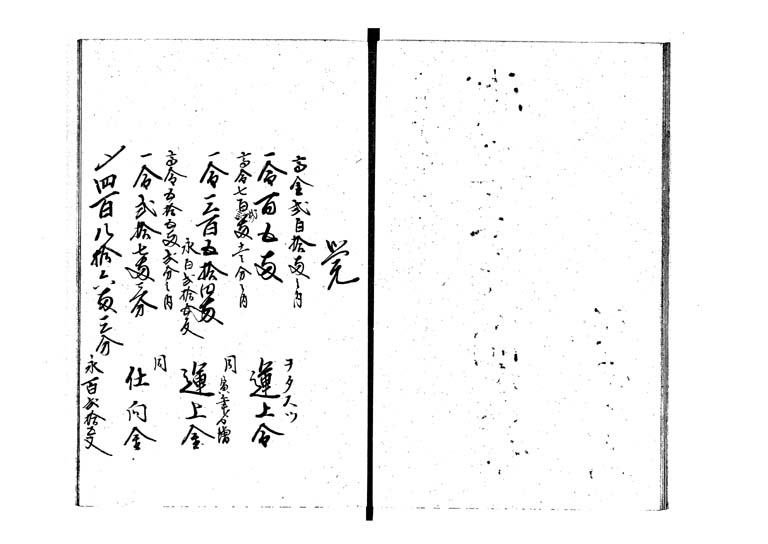 覚
高金弐百拾両之内
一金百五両
ヲタスツ
運上金
高金七百八両壱分之内
一金三百五拾四両
永百弐拾五文
同
運上金
高金五拾五両弐分之内
一金弐拾七両三分
同
仕向金
〆四百八拾六両三分
永百弐拾五文